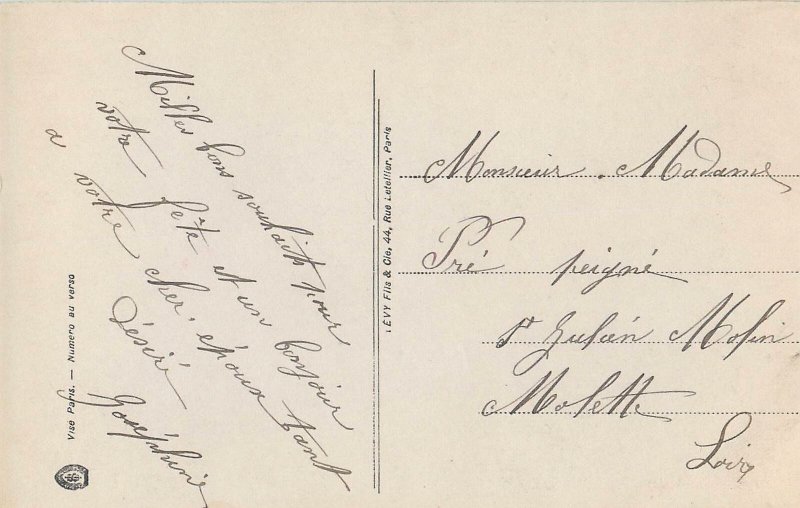 Milles bons souhaits pour
votre fête et un bonjour
a votre cher époux tant
désiré
Joséphine
Vise Paris. — Numero au verso
LEVY Fils & Cie, 44, Rue Letellier, Paris
Monsieur. Madame
Pré peigné
St Julien Molin
Molette
Loire